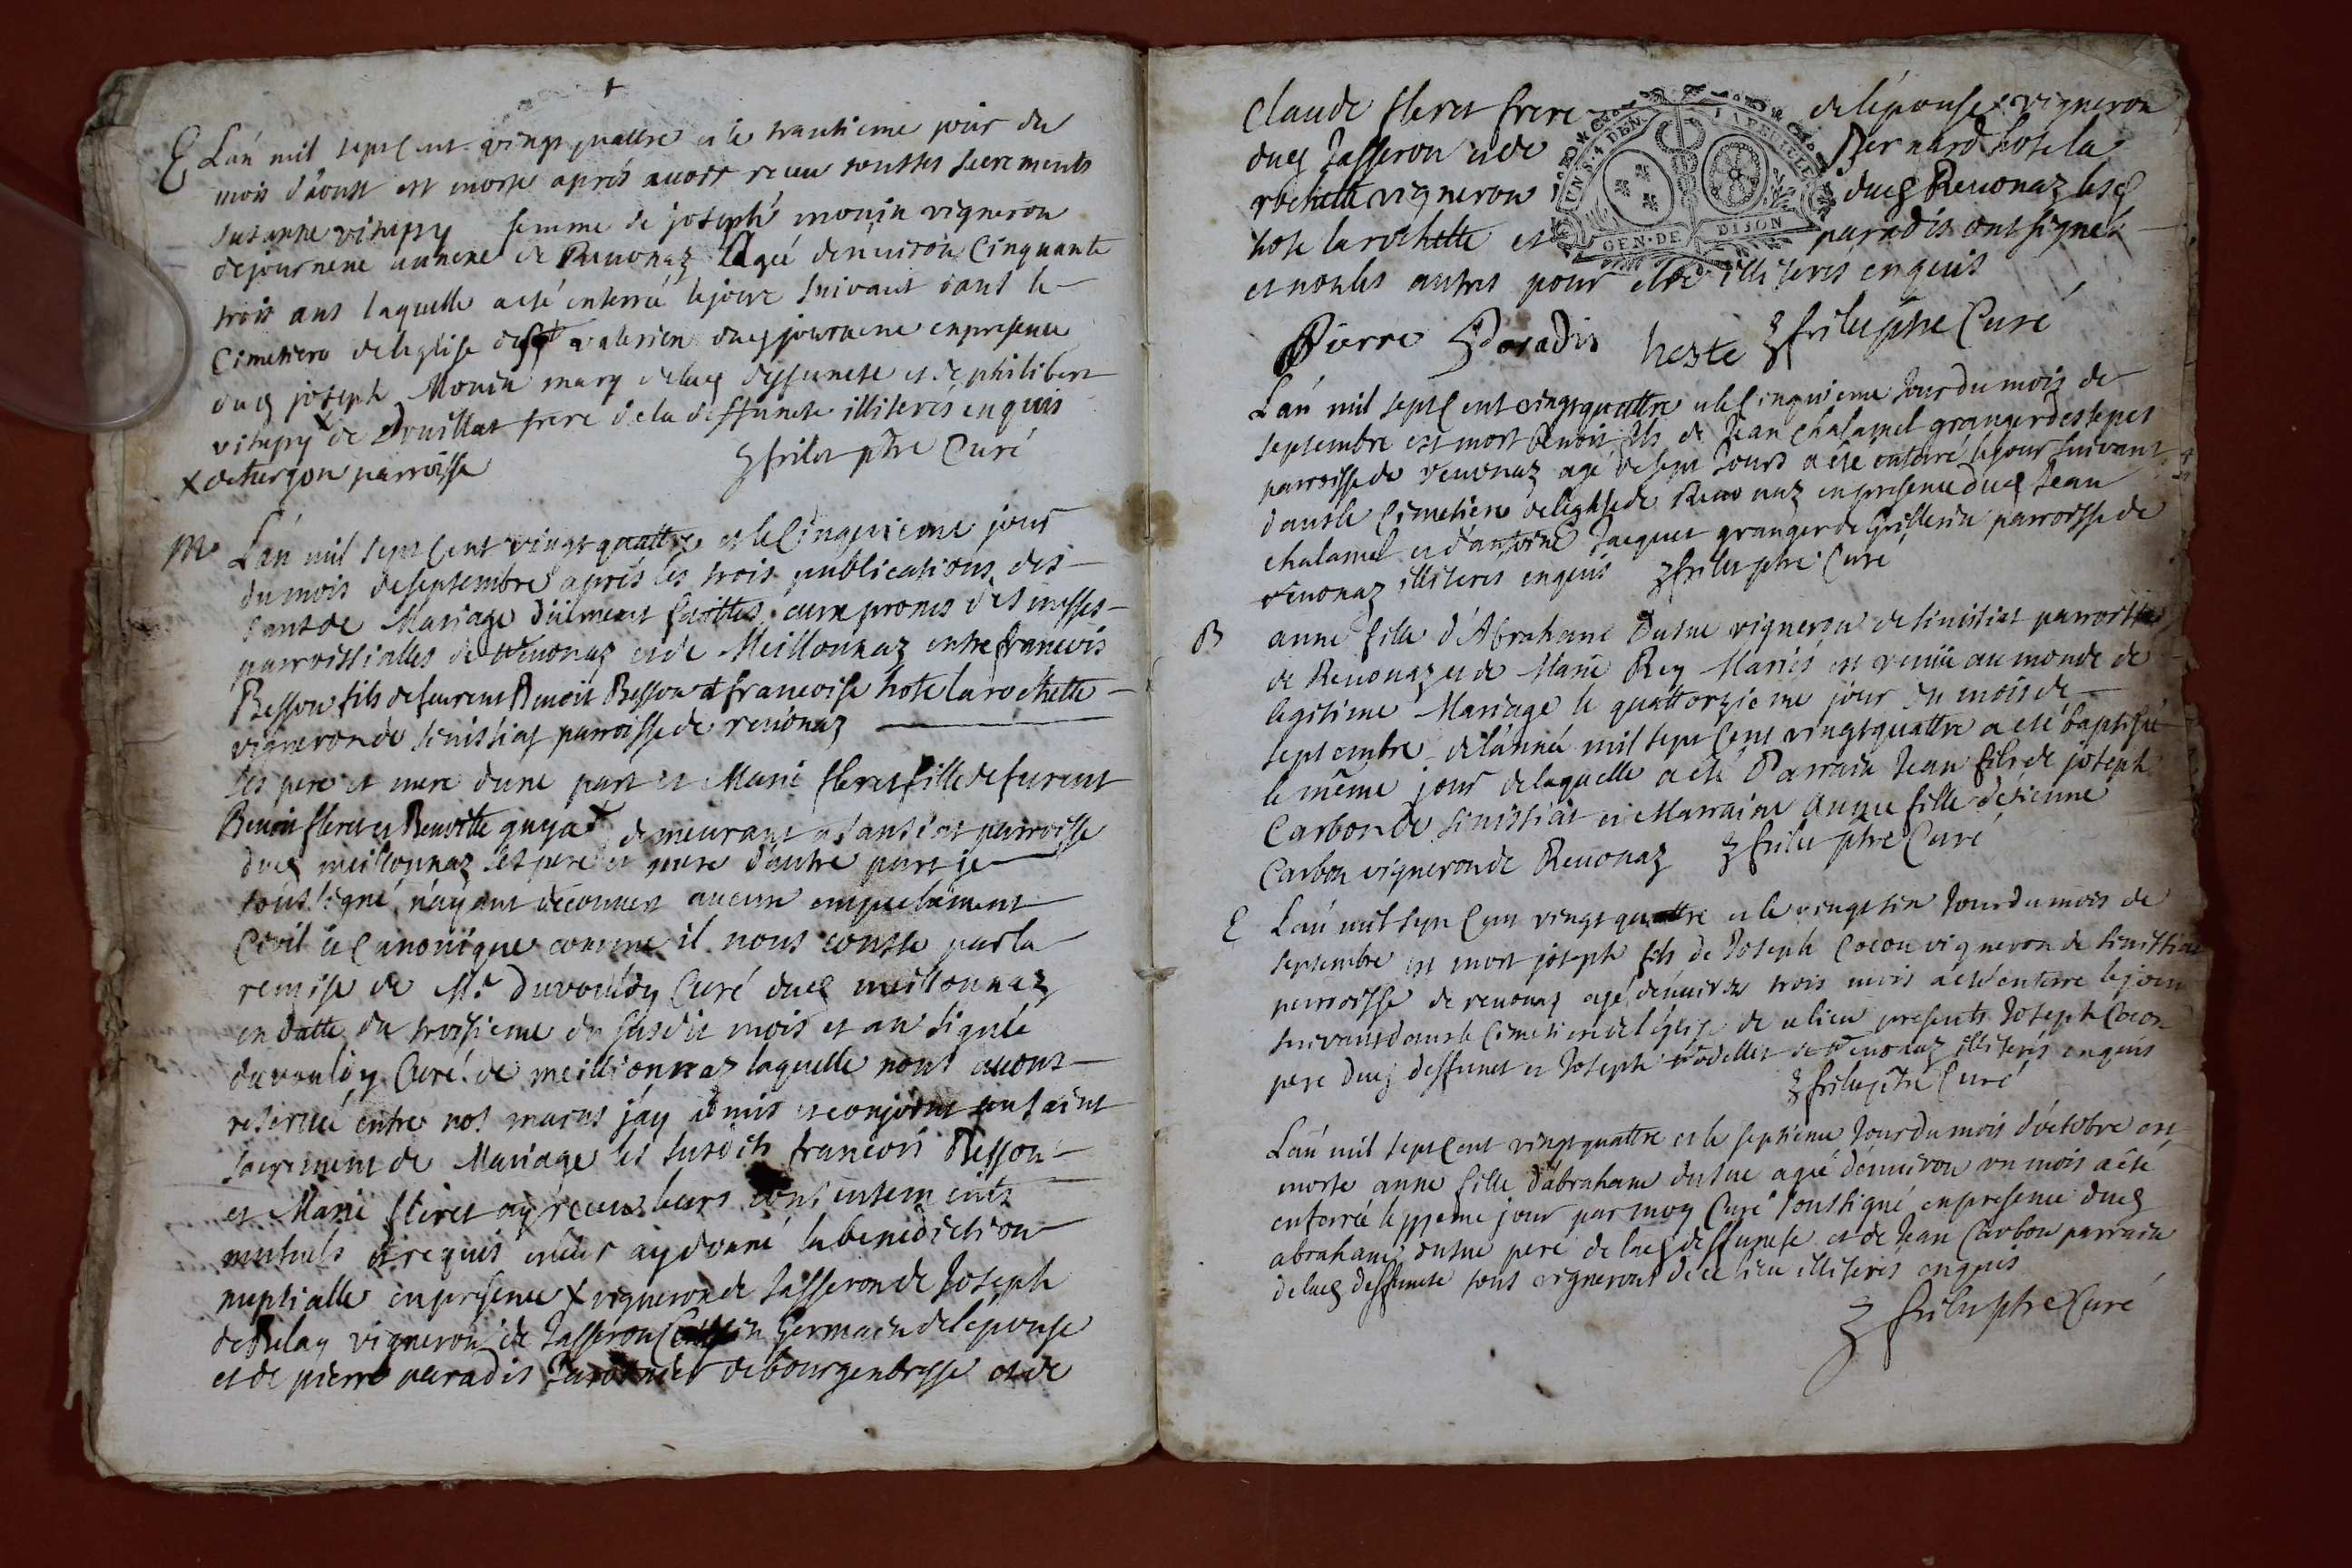 E L'an mil sept cent vingt quattre et le trantieme jour du
mois d'aoust est morte aprés avoir receu tousses sacrements
susanne vitupry femme de joseph monin vigneron
de journene annexe de Reuonaz Agée denuiron Cinquante
trois ans laquelle a eté enterrée le jour suivant dans le
Cimetiere de leglise de st valerien dud journene en presence
dud joseph Monin mary de lad deffuncte et de philibert
vitupry x de Druillat frere de la deffuncte illiteres enquis
x de turgon parroisse frilet ptre Curé
M L'an mil sept Cent vingt quattre et le Cinquieme jour
du mois de septembre aprés les trois publications des
bans de Mariage düement faittes aux prones des messes
parroissialles de reuonaz et de Meillonnaz entre francois
Besson fils de feurent Benoit Besson et francoise hote la rochette
vigneron de senissiat parroisse de reuonaz
ses pere et mere dune part et Marie fleret fille de furent
Benoit fleret et Benoitte guyat demeurant a sansiat parroisse
dud meillonnaz ses pere et mere dautre part je
sous signé n'ayant decouvert aucun empechement
Civil et Canonique comme il nous conste par la
remise de Mr Duvouldy Curé dud meillonnaz
en datte du troisieme du susdit mois et an signée
duvouldy Curé de meillionnaz laquelle nous auons
reseruée entre nos mains j'ay admis et conjoint au saint
sacrement de Mariage les susdits francois Besson
et Marie fleret ay receu leurs consentements
mutuels et requis et leur ay donné la benediction
nuptialle en presence x vigneron de Jasseron de Joseph
de Belay vigneron de Jasseron Cousin Germain de lepouse
et de pierre paradis de bourgenbresse et de
Claude fleret frere de lépouse x vigneron
dud Jasseron et de Bernard hote la
rochette vigneron dud Reuonaz lesd
hote la rochette et paradis ont signés
et non les autres pour etre illiteres enquis
UN S. 4 DEN. LA FEUILLE
GEN. DE DIJON
Pierre Paradis hoste frilet ptre Curé
L'an mil sept Cent vingt quattre et le Cinquieme Jour du mois de
septembre est mort benoit fils de Jean Chalamel granger des
parroisse de reuonaz agé de sept Jours a eté enterré le jour suivant
dans le Cimetiere de leglise de Reuonaz en presence dud Jean
chalamel et d'antoine Jacquet granger de Grillerin parroisse de
reuonaz illiteres enquis frilet ptre Curé
B anne fille d'Abraham Dutue vigneron de sinissiat parroisse
de Reuonaz et de Marie Rey Mariés est venüe au monde de
legitime Mariage le quattorzieme jour du mois de
septembre de lannée mil sept Cent vingt quattre a eté baptisée
le même jour de laquelle a eté Parrain Jean fils de joseph
Carbon de sinissiat et Marraine Anne fille d'etienne
Carbon vigneron de Reuonaz frilet ptre Curé
E L'an mil sept Cent vingt quattre et le vingt six Jour du mois de
septembre est mort joseph fils de Joseph Cocon vigneron de sinissiat
parroisse de reuonaz agé denuiron trois mois a eté enterré le jour
suivant dans le Cimetiere de l'église de ce lieu presents Joseph Cocon
pere dud deffunct et Joseph rodellet de reuonaz illiteres enquis
frilet ptre Curé
L'an mil sept Cent vingt quattre et le septieme Jour du mois d'octobre est
morte anne fille d'abraham dutue agée denuiron un mois a eté
enterrée le meme jour par moy Curé soussigné en presence dud
abraham dutue pere de lad deffuncte et de Jean Carbon parrain
de lad deffuncte tous vignerons de ce lieu illiteres enquis
frilet ptre Curé